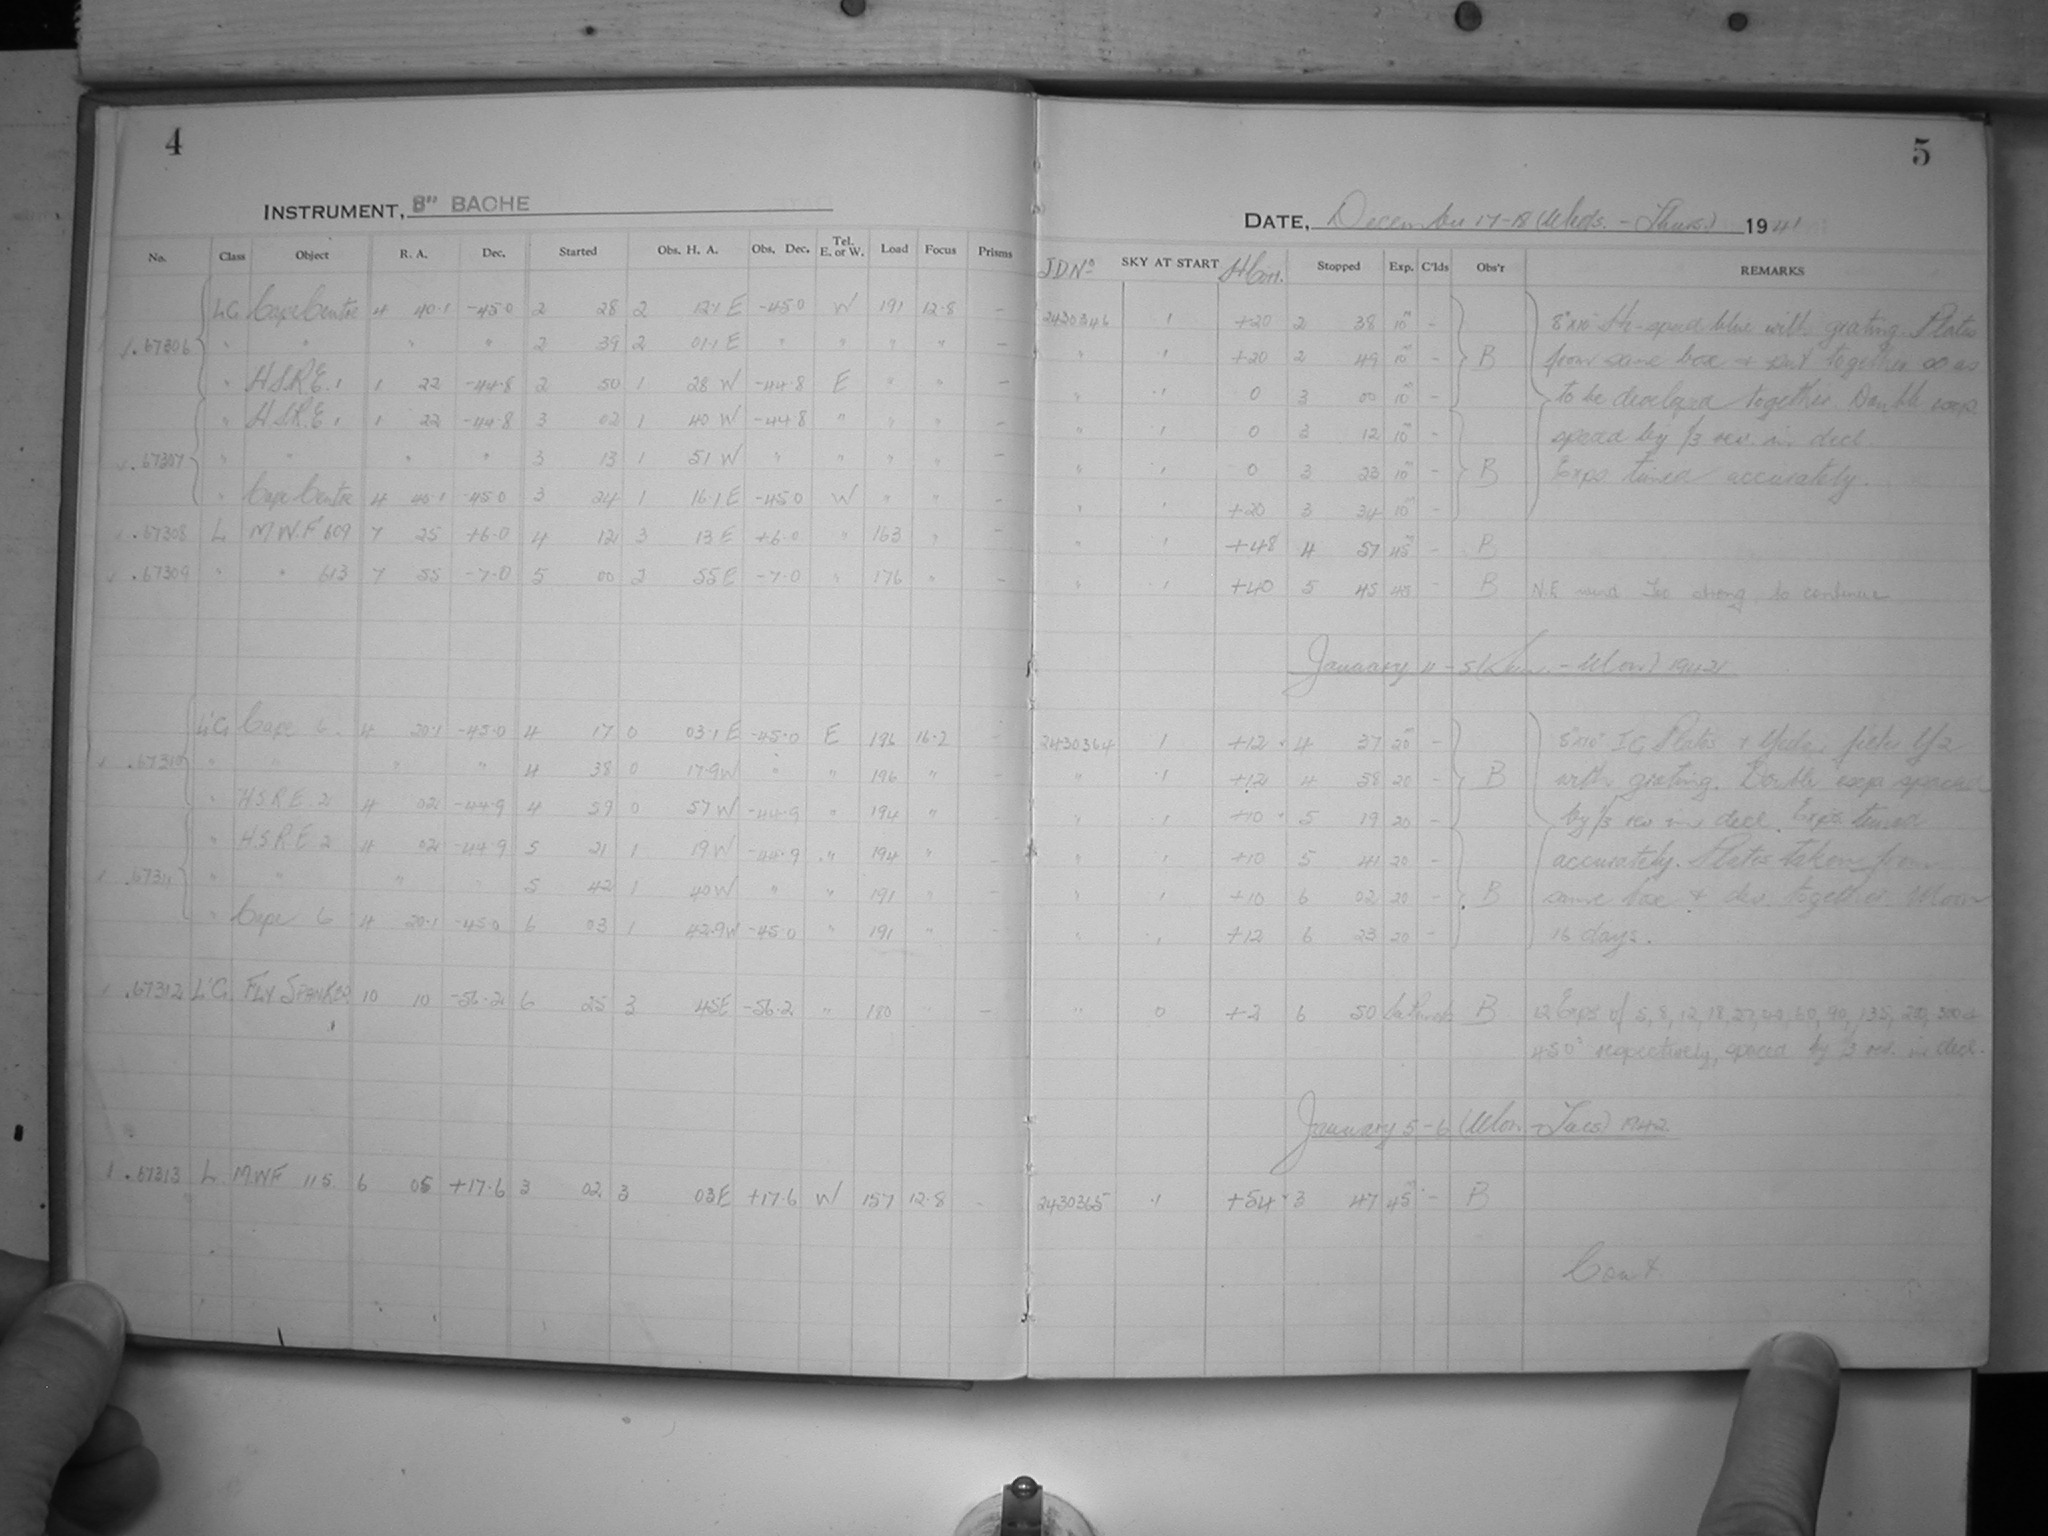 4
INSTRUMENT, 8" BACHE
No. Class Object R. A. Dec. Started Obs. H. A. Obs. Dec. Tel. E. or W. Load Focus Prisms
L'C Cape Centre 4 40.1 -45.0 2 28 2 12.1 E -45.0 W 191 12.8 -
.67306 " " " " 2 39 2 01.1 E " " " " -
" H.S.R.E. 1 1 22 -44.8 2 50 1 28 W -44.8 E " " -
" H.S.R.E. 1 1 22 -44.8 3 02 1 40 W -44.8 " " " -
.67307 " " " " 3 13 1 51 W " " " " -
" Cape Centre 4 40.1 -45.0 3 24 1 16.1 E -45.0 W " " -
.67308 L M.W.F 609 7 25 +6.0 4 12 3 13 E +6.0 " 163 " -
.67309 " " 613 7 55 -7.0 5 00 2 55 E -7.0 " 176 " -
L'C Cape 6 4 20.1 -45.0 4 17 0 03.1 E -45.0 E 196 16.2 -
.67310 " " " " 4 38 0 17.9 W " " 196 " -
" H.S.R.E. 2 4 02 -44.9 4 59 0 57 W -44.9 " 194 " -
" H.S.R.E. 2 4 02 -44.9 5 21 1 19 W -44.9 " 194 " -
.67311 " " " " 5 42 1 40 W " " 191 " -
" Cape 6 4 20.1 -45.0 6 03 1 42.9 W -45.0 " 191 " -
.67312 L'C FLY SPANKER 10 10 -56.2 6 25 3 45 E -56.2 " 180 " -
.67313 L MWF 115 6 05 +17.6 3 02 3 03 E +17.6 W 157 12.8 -
5
DATE, December 17-18 (Weds. - Thurs) 1941
JD No SKY AT START H Corr. Stopped Exp. C'lds Obs'r REMARKS
2430346 1 +20 2 38 10m - 8"x10" speed blue with grating. Plates
" 1 +20 2 49 10m - B from same box + put together so as
" 1 0 3 00 10m - to be developed together. Double exps
" 1 0 3 12 10m - spaced by 1/3 rev. in decl.
" 1 0 3 23 10m - B Exps. timed accurately.
" 1 +20 3 34 10m -
" 1 +48 4 57 45m - B
" 1 +40 5 45 45 - B N.E. wind too strong to continue
January 4-5 (Sun. - Mon) 1942
2430364 1 +12 4 37 20m - 8"x10" Plates + filter
" 1 +12 4 58 20 - B with grating. Double exps spaced
" 1 +10 5 19 20 - by 1/3 rev in decl. Exps timed
" 1 +10 5 41 20 - accurately. Plates taken from
" 1 +10 6 02 20 - B same box + dev. together. Moon
" 1 +12 6 23 20 - 16 days.
" 0 +2 6 50 B 12 Exps of 5, 8, 12, 18, 27, 40, 60, 90, 135, 200, 300 +
450s respectively, spaced by 3 rev. in decl.
January 5-6 (Mon. - Tues) 1942.
2430365 1 +54 3 47 45m - B
Cont.